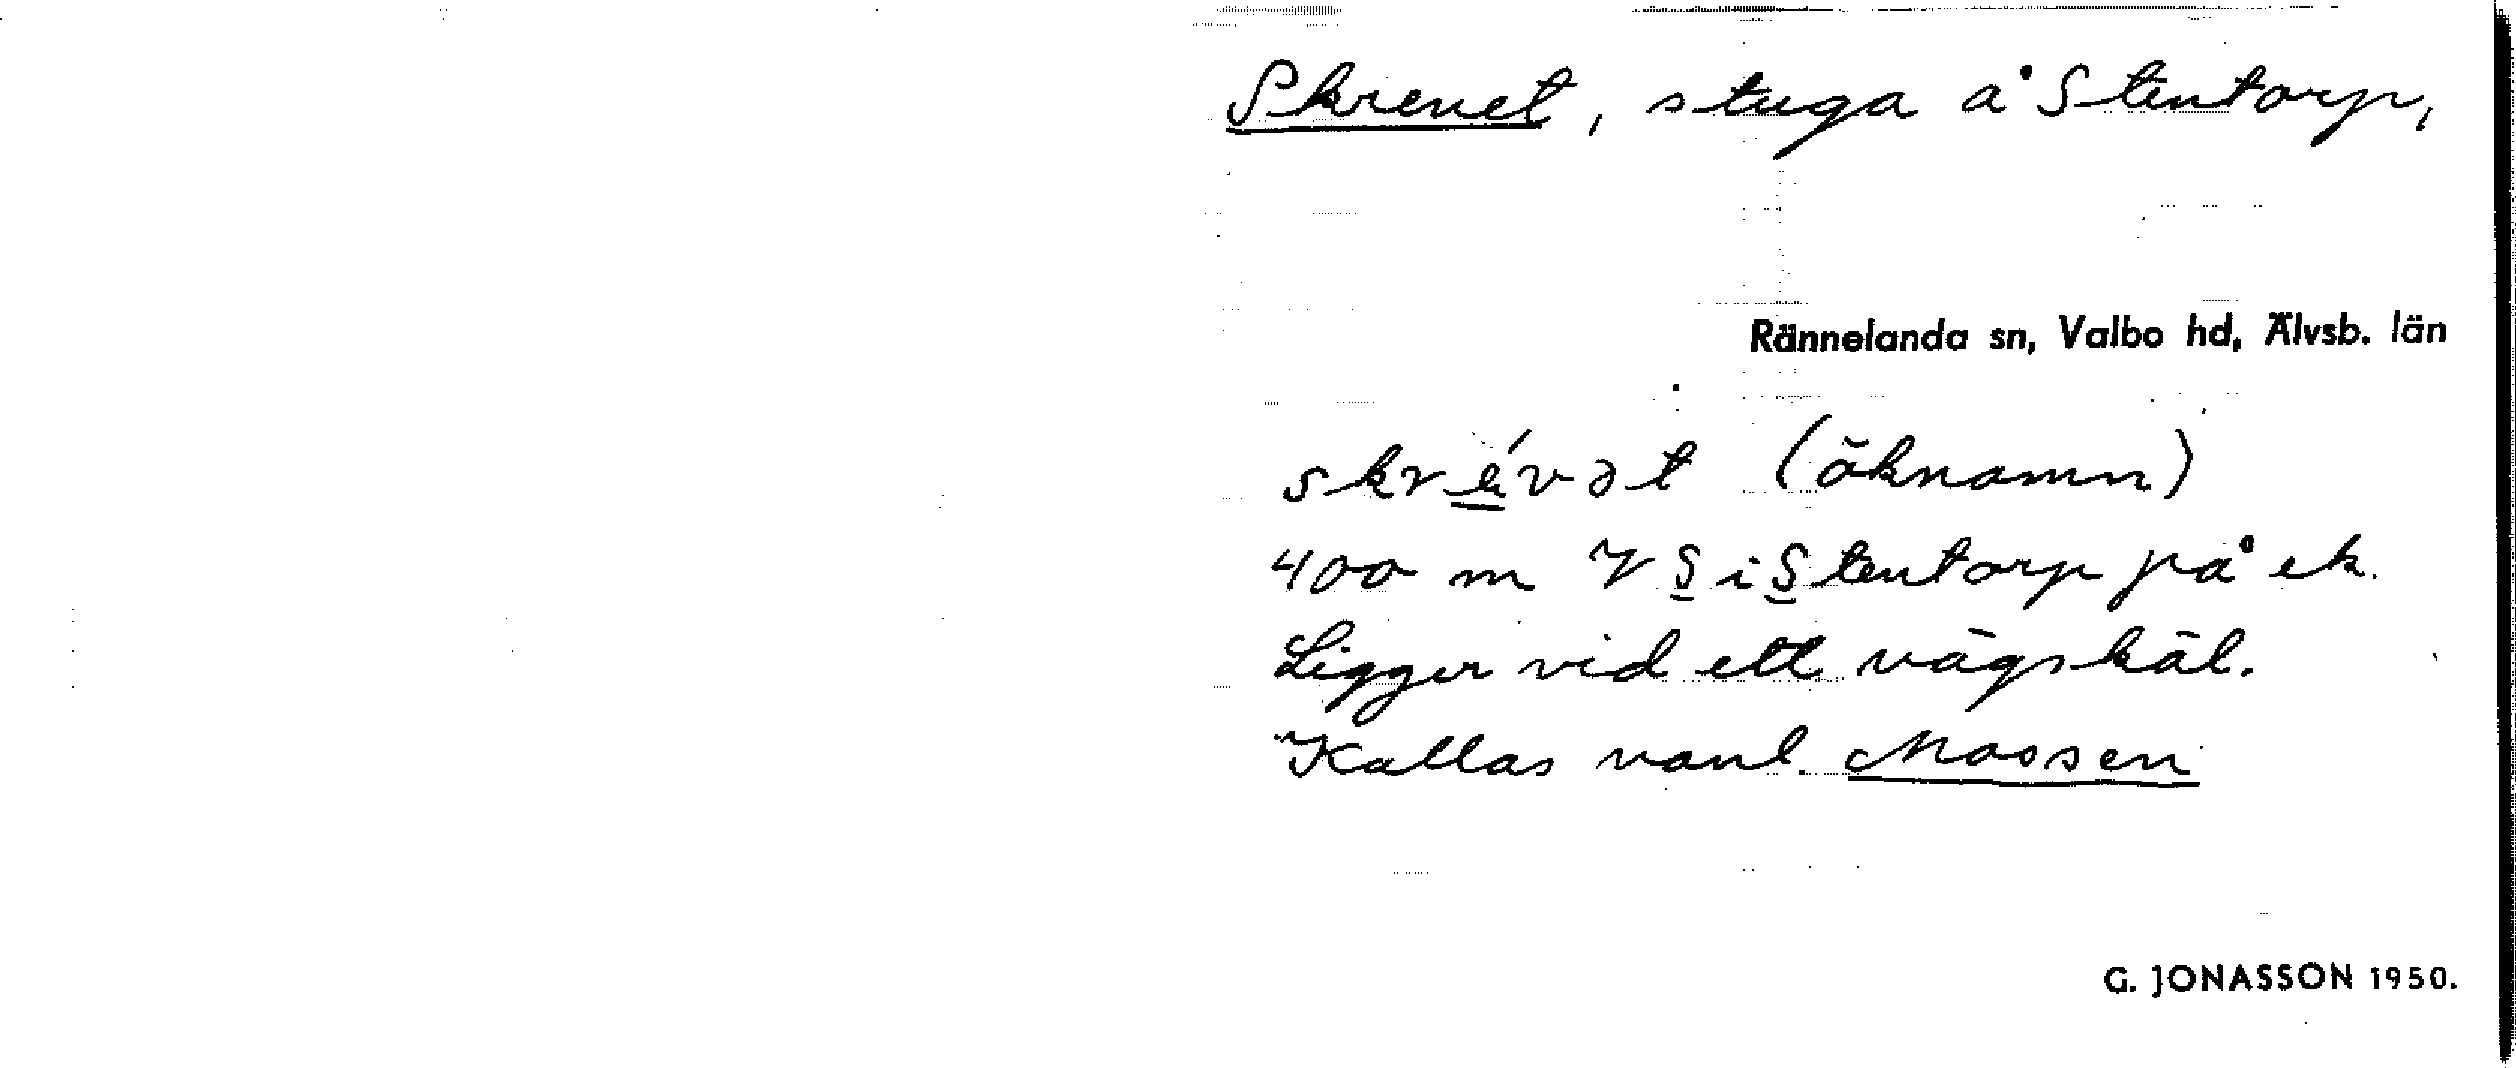 Skrevet, stuga å Stentorp,
Rännelanda sn, Valbo hd, Älvsb. län
skrévət (öknamn)
400 m V S i Stentorp på ek.
Ligger vid ett vägskäl.
Kallas vanl. Mossen
G. JONASSON 1950.